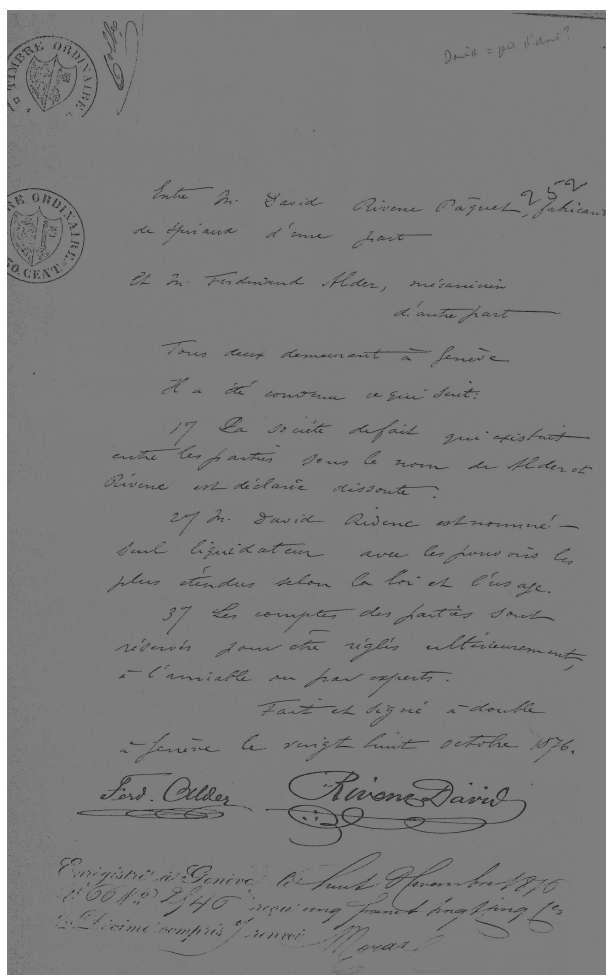 TIMBRE ORDINAIRE
David =
252
RE ORDINAIRE
50. CENT.
Entre M. David Rivene Pâquet, fabricant
de spiraux d'une part
Et M. Ferdinand Alder, mécanicien
d'autre part
Tous deux demeurant à Genève
Il a été convenu ce qui suit:
1°/ La société de fait qui existait
entre les parties sous le nom de Alder et
Rivene est déclarée dissoute.
2°/ M. David Rivene est nommé
seul liquidateur avec les pouvoirs les
plus étendus selon la loi et l'usage.
3°/ Les comptes des parties sont
réservés pour être réglés ultérieurement,
à l'amiable ou par experts.
Fait et signé à double
à Genève le vingt huit octobre 1876.
Ferd. Alder Rivene David
Enregistré à Genève le huit Novembre 1876
reçu cinq francs
Décime compris